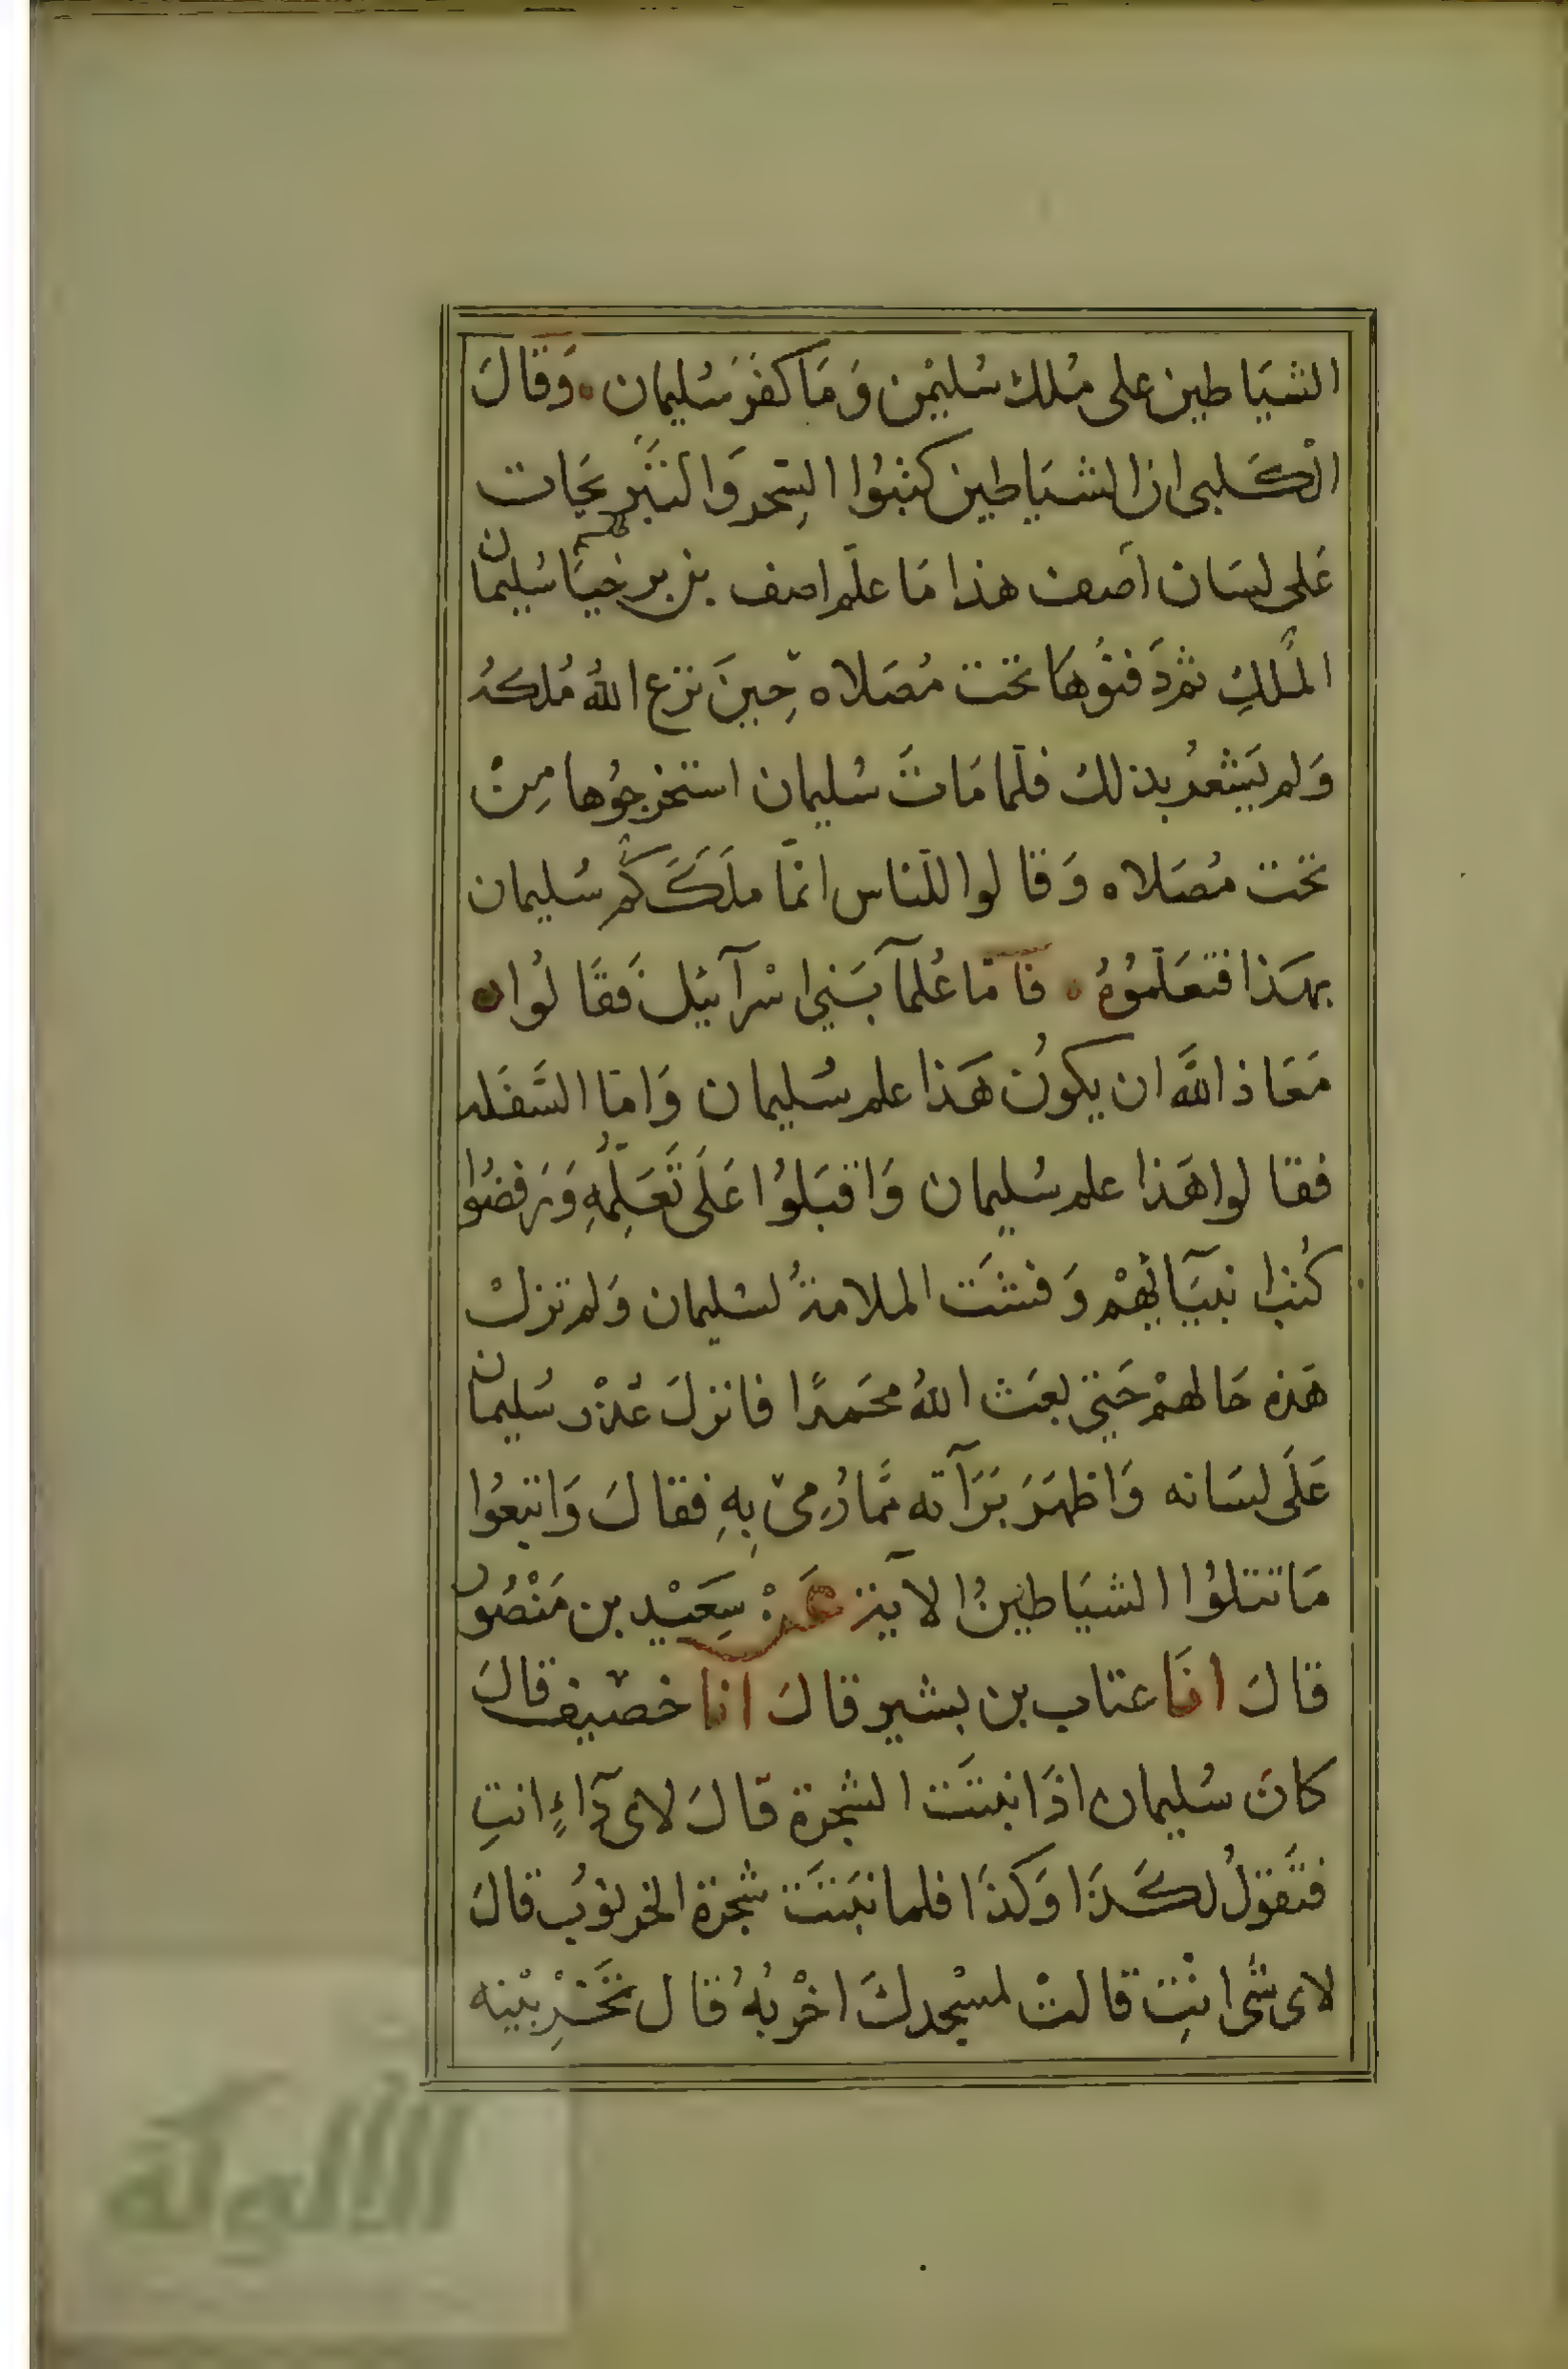 الشَيَاطين على مُلك سُليمٰن وَمَا كفَرَ سُليمان ۰ وَقَالَ
الْكَلبى ان الشيَاطين كتبُوا السِّحر وَالنَّيَرنجَات
عَلى لسَان آصف هذا مَا علّم اصف بن برخيَا سُليمان
المَلكِ ثم دَفنُوهَا تحت مُصَلاه حِينَ نزع اللهُ مُلكهُ
وَلم يَشعُر بذلك فلمّا مَاتَ سُليمان استخرجُوها مِنْ
تحت مُصَلاه وَقالوا للنّاس انّمَا ملَكَكُم سُليمان
بهَذا فتعَلمُوهُ ۰ فَامّا عُلمآ بَني اسْرآئيل فَقَالُوا ۰
مَعَاذ اللهَ ان يكونُ هَذا علم سُليمان وَامّا السَّفَله
فقالوا هَذا علم سُليمان وَاقبَلوُا عَلَى تَعَلمُّهِ وَرَفضُوا
كُتب انبيَآئِهِمْ وَفشَت الملامةُ لسُليمان وَلم تزلْ
هَذه حَالهمْ حَتى بعَث اللهُ محَمدًا فانزلَ عُذْر سُليمان
عَلَى لسَانه وَاظهَرَ بَرَآته ممّا رُمِىَ بِهِ فقالَ وَاتبعُوا
مَا تتلوُا الشيَاطينُ الآية عَنْ سَعَيْد بن مَنْصُور
قالَ انَا عتاب بن بشير قالَ انا خصَيف قالَ
كانَ سُليمان اذَا نبتَت الشجَرة قالَ لاى دَآءٍ انتِ
فتَقولُ لكَذَا وَكَذَا فلما نبَتَت شجَرَة الخرنوُب قالَ
لاى شَى انْتِ قالتْ لمسْجدكَ اخْربُهُ قال تخَرْبيْنه
الألوكة